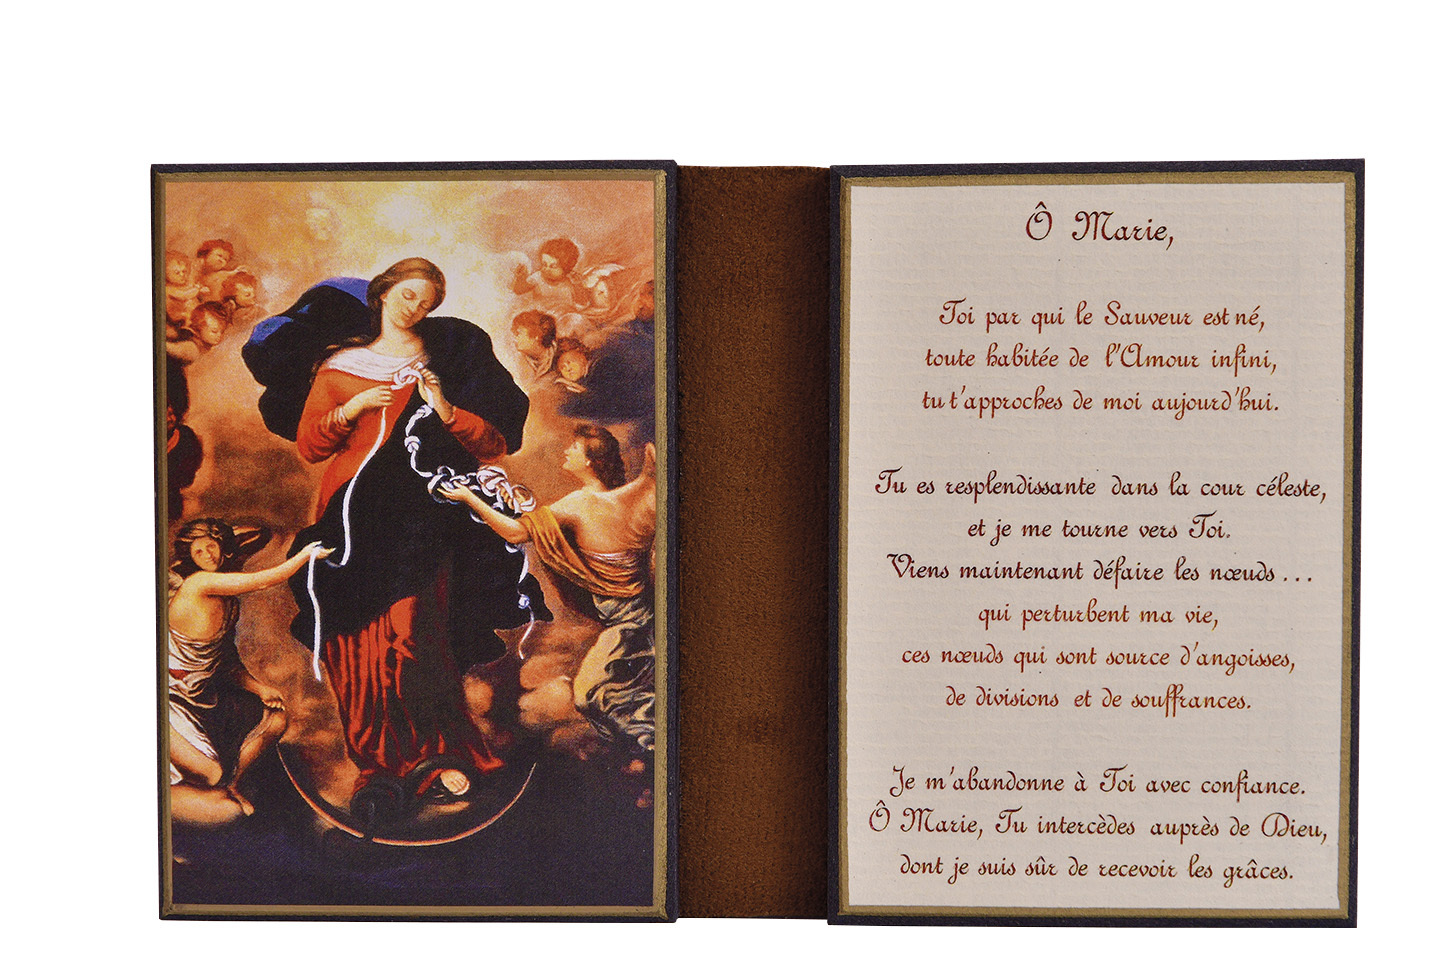 Ô Marie,
Toi par qui le Sauveur est né,
toute habitée de l'Amour infini,
tu t'approches de moi aujourd'hui.
Tu es resplendissante dans la cour céleste,
et je me tourne vers Toi.
Viens maintenant défaire les nœuds ...
qui perturbent ma vie,
ces nœuds qui sont source d'angoisses,
de divisions et de souffrances.
Je m'abandonne à Toi avec confiance.
Ô Marie, Tu intercèdes auprès de Dieu,
dont je suis sûr de recevoir les grâces.